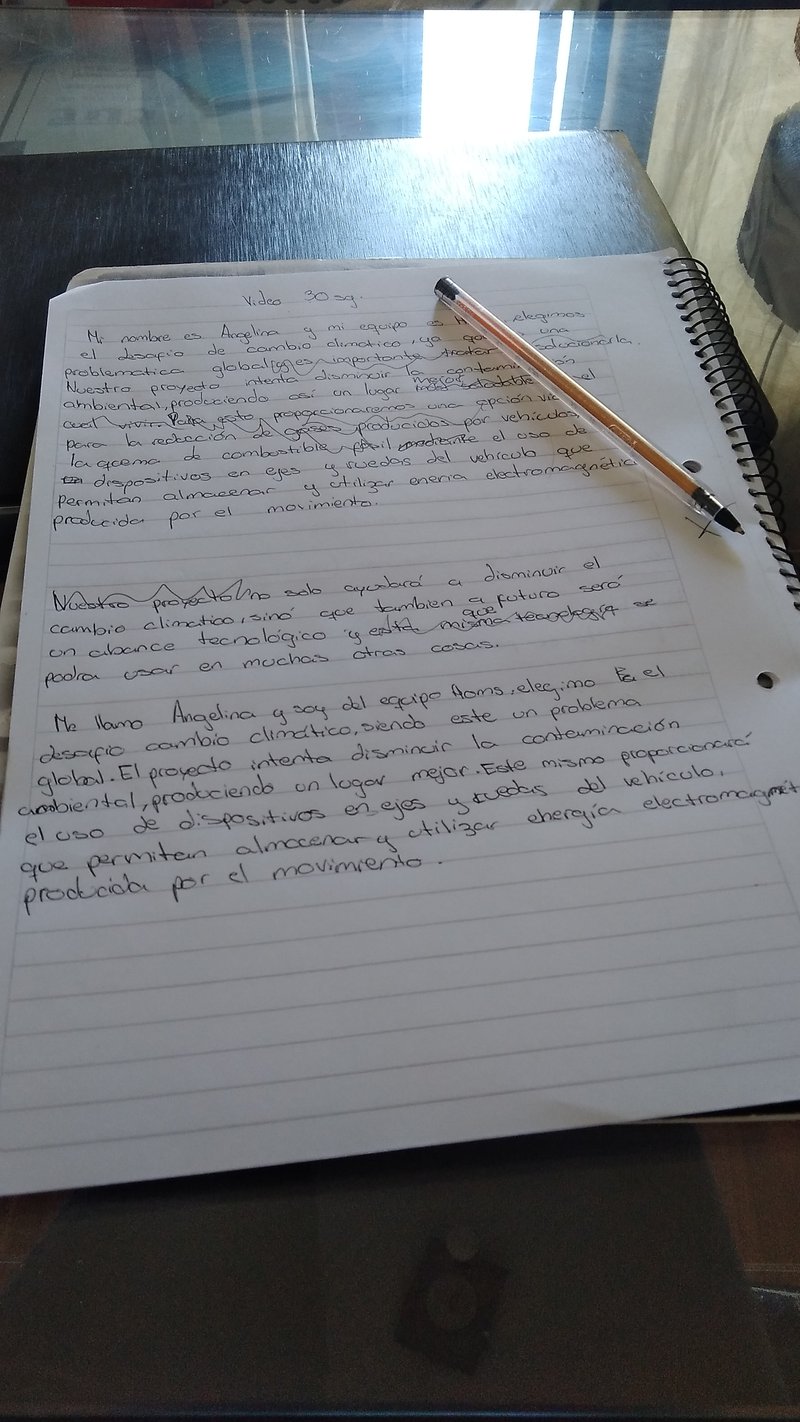 Video 30 sg.
Mi nombre es Angelina y mi equipo es elegimos
el desafio de cambio climatico, ya una
problematica global y es importante tratar solucionarla.
Nuestro proyecto intenta disminuir la
ambiental, produciendo asi un lugar mejor más saludable el
cual vivir. Para esto proporcionaremos una opción
para la reducción de gases producidos por vehículos,
la quema de combustible fósil mediante el uso de
en dispositivos en ejes y ruedas del vehículo que
permitan almacenar y utilizar eneria electromagnética
producida por el movimiento.
X
Nuestro proyecto no solo ayudará a disminuir el
cambio climatico, sinó que tambien a futuro será
un abance tecnológico y que esta misma tecnología se
podra usar en muchas otras cosas.
Me llamo Angelina y soy del equipo Aoms, elegimo el
desafio cambio climático, siendo este un problema
global. El proyecto intenta disminuir la contaminación
ambiental, produciendo un lugar mejor. Este mismo proporcionará
el uso de dispositivos en ejes y ruedas del vehículo,
que permitan almacenar y utilizar energía electromagnét
producida por el movimiento.